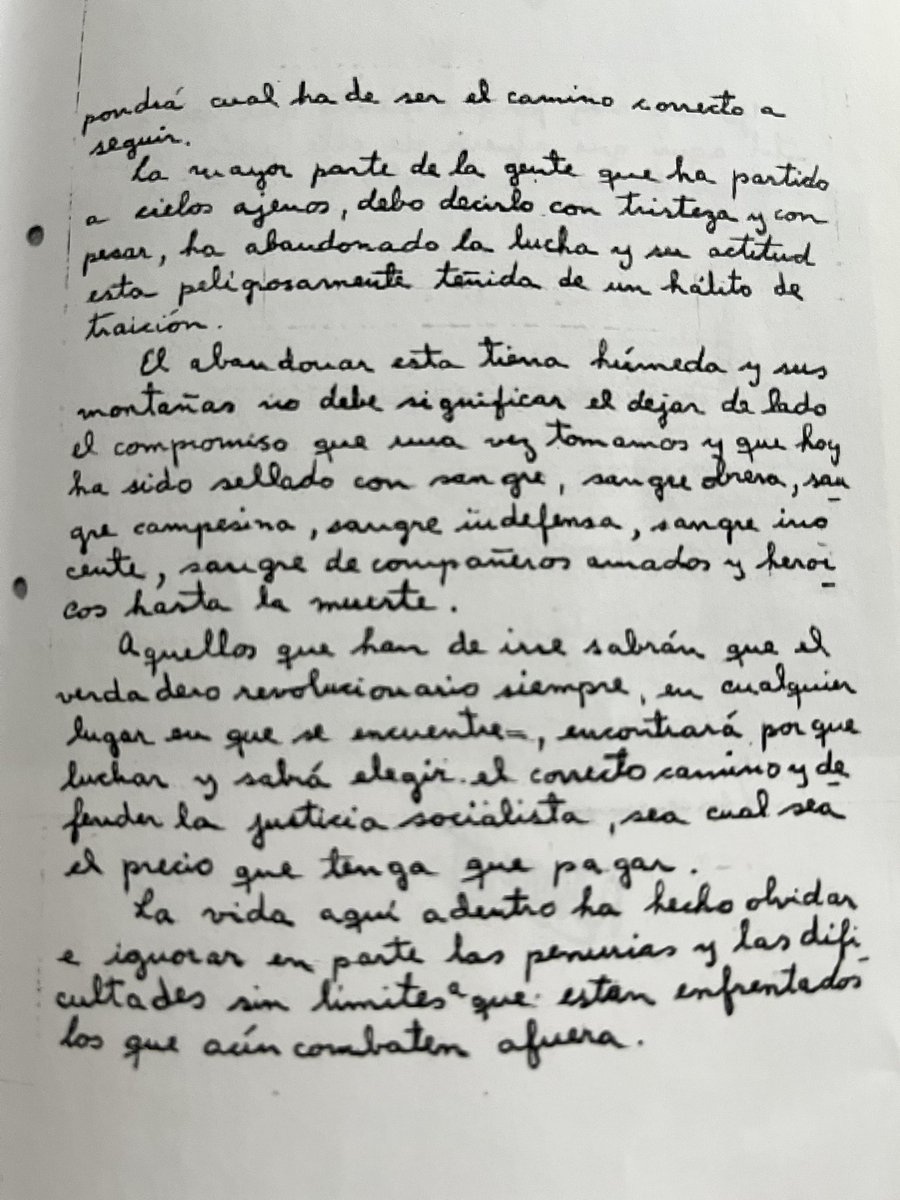 pondrá cual ha de ser el camino correcto a
seguir.
La mayor parte de la gente que ha partido
a cielos ajenos, debo decirlo con tristeza y con
pesar, ha abandonado la lucha y su actitud
esta peligrosamente teñida de un hálito de
traición.
El abandonar esta tierra húmeda y sus
montañas no debe significar el dejar de lado
el compromiso que una vez tomamos y que hoy
ha sido sellado con sangre, sangre obrera, san
gre campesina, sangre indefensa, sangre ino
cente, sangre de compañeros amados y heroi
cos hasta la muerte.
Aquellos que han de irse sabrán que el
verdadero revolucionario siempre, en cualquier
lugar en que se encuentre=, encontrará porque
luchar y sabrá elegir el correcto camino y de
fender la justicia socialista, sea cual sea
el precio que tenga que pagar.
La vida aquí adentro ha hecho olvidar
e ignorar en parte las penurias y las difi
cultades sin limites a que estan enfrentados
los que aún combaten afuera.